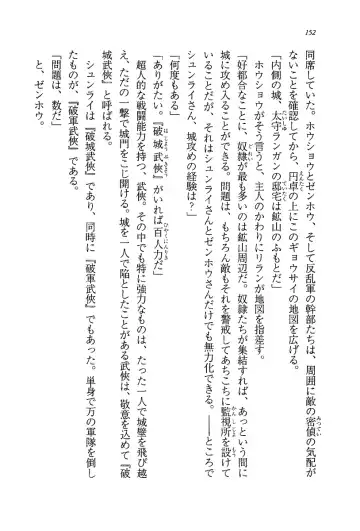 152
同席していた。ホウショウとゼンホウ、そして反乱軍の幹部たちは、周囲に敵の密偵の気配が
ないことを確認してから、円卓の上にこのギョウサイの地図を広げる。
「内側の城、太守ランガンの邸宅は鉱山のふもとだ」
ホウショウがそう言うと、主人のかわりにリランが地図を指差す。
「好都合なことに、奴隷が最も多いのは鉱山周辺だ。奴隷たちが集結すれば、あっという間に
城に攻め入ることができる。問題は、もちろん敵もそれを警戒してあちこちに監視所を設けて
いることだが、それはシュンライさんとゼンホウさんだけでも無力化できる。――ところで
シュンライさん、城攻めの経験は？」
「何度もある」
「ありがたい。『破城武侠』がいれば百人力だ」
超人的な戦闘能力を持つ、武侠。その中でも特に強力なものは、たった一人で城壁を飛び越
え、ただの一撃で城門をこじ開ける。城を一人で陥としたことがある武侠は、敬意を込めて『破
城武侠』と呼ばれる。
シュンライは『破城武侠』であり、同時に『破軍武侠』でもあった。単身で万の軍隊を倒し
たものが、『破軍武侠』である。
「問題は、数だ」
と、ゼンホウ。